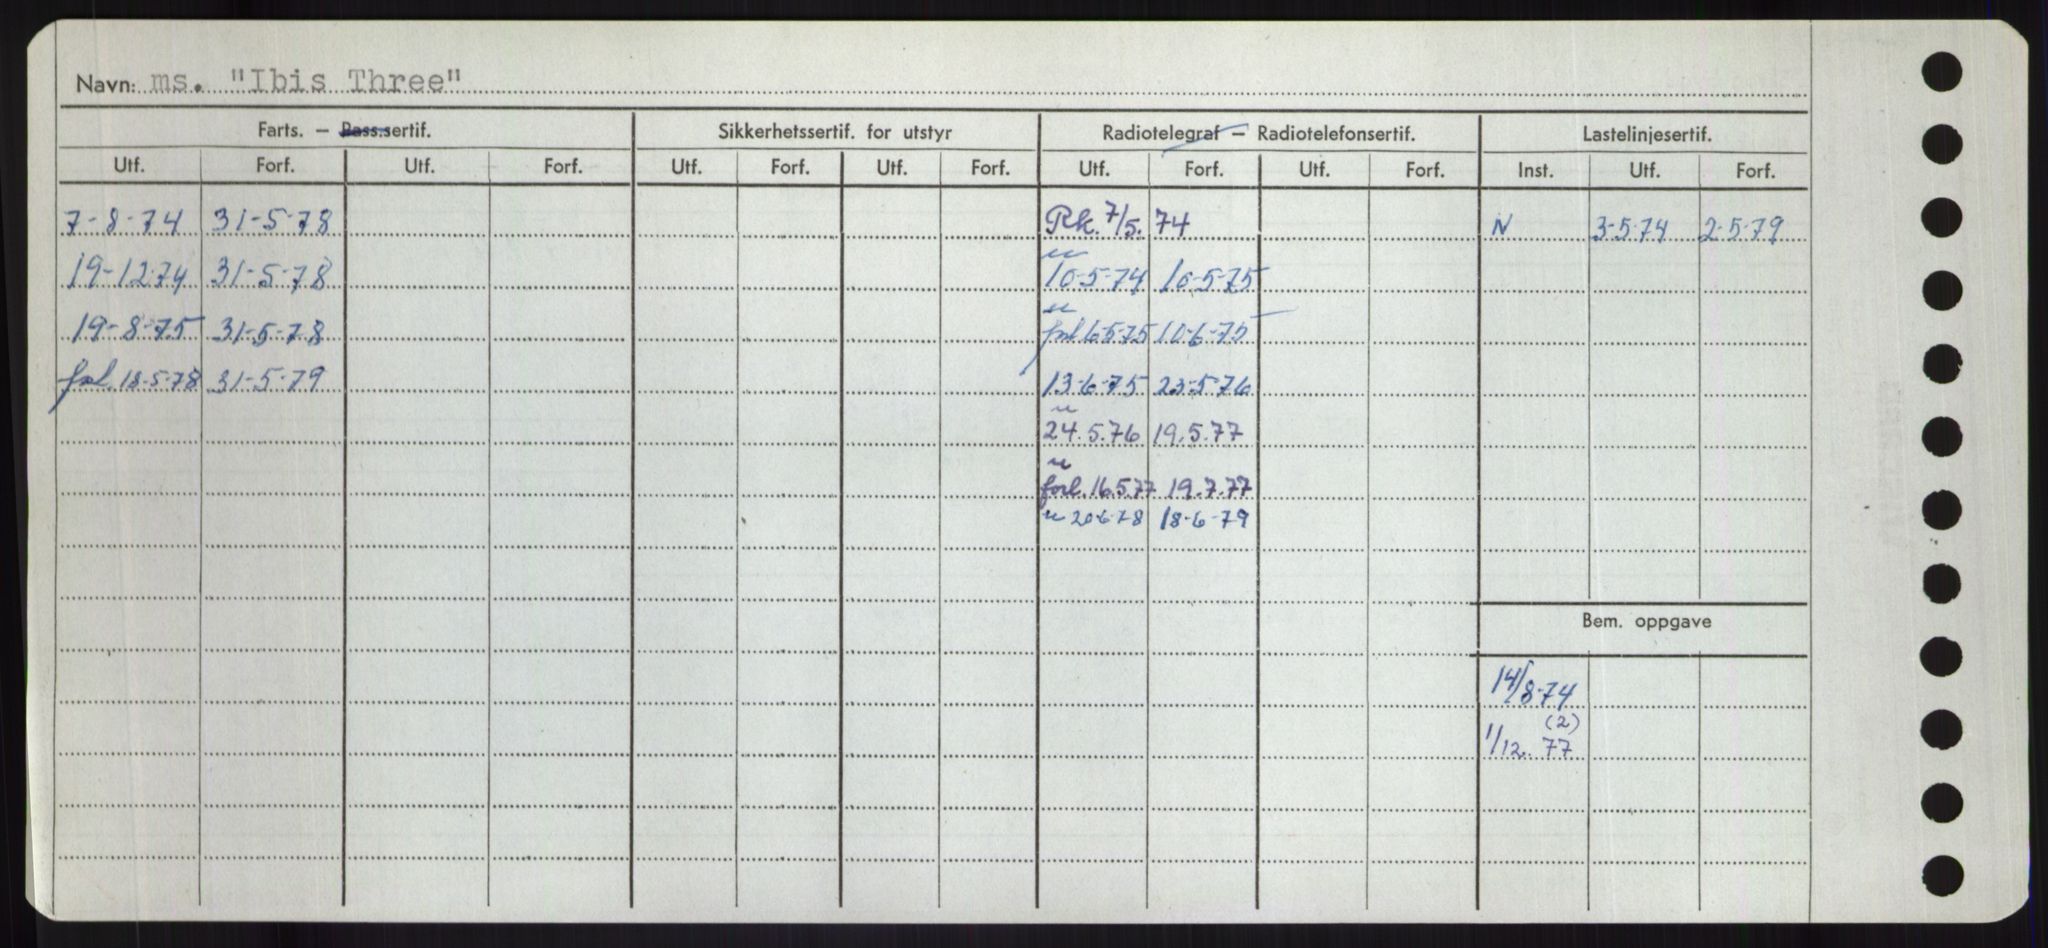 Navn: ms. "Ibis Three"
Farts. — Pass.sertif. Sikkerhetssertif. for utstyr Radiotelegraf — Radiotelefonsertif. Lastelinjesertif.
Utf. Forf. Utf. Forf. Utf. Forf. Utf. Forf. Utf. Forf. Utf. Forf. Inst. Utf. Forf.
7-8-74 31-5-78 Rk. 7/5. 74 N 3-5-74 2-5-79
19-12-74 31-5-78 u 10-5-74 10-5-75
19-8-75 31-5-78 u forl 6-5-75 10-6-75
forl. 18-5-78 31-5-79 13-6-75 23-5-76
u 24.5.76 19.5.77
u forl. 16.5.77 19.7.77
u 20-6-78 18-6-79
Bem. oppgave
14/8-74
(2)
1/12. 77